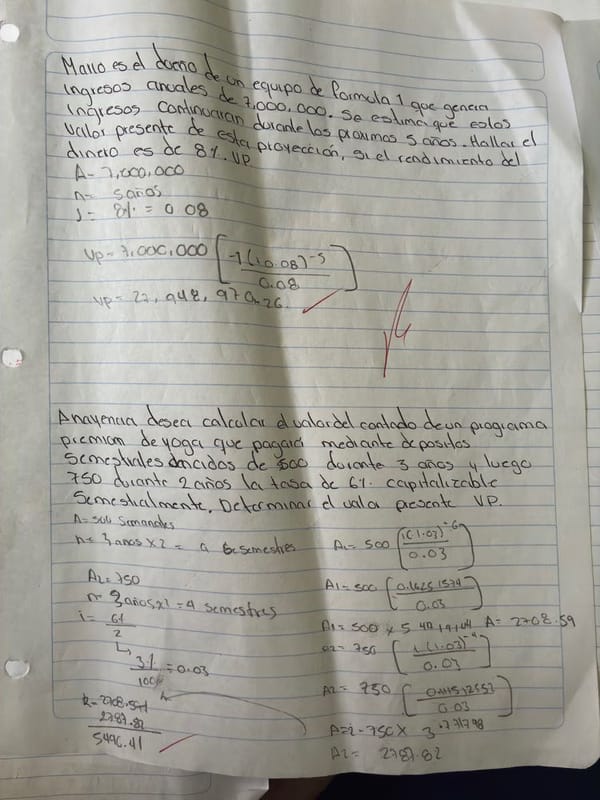 Mario es el dueño de un equipo de formula 1 que genera
Ingresos anuales de 7,000,000. Se estima que estos
Ingresos continuaran durante los proximos 5 años. Hallar el
Valor presente de esta proyección, si el rendimiento del
dinero es de 8%. VP
A- 7,000,000
n= 5 años
J= 8% = 0 08
VP= 7,000,000 [-1(10.08)^-5 / 0.08]
VP= 27,948,970.26
desea calcular el valor del contado de un programa
premium de yoga que pagará mediante depositos
Semestrales de 500 durante 3 años y luego
750 durante 2 años la tasa de 6% capitalizable
Semestralmente. Determinar el valor presente VP.
n= 3 años x 2 = 6 semestres
A1= 500 [1(1.03)^-6 / 0.03]
A2= 750
A1= 500 [0.1625 1574 / 0.03]
= 4 semestres
i= 6% / 2
A1= 500 x 5 A= 2708.59
3% / 100 = 0.03
= 750 [1(1.03)^-4 / 0.03]
A2= 750 [ / 0.03]
2787.82
5496.41
750 x 3.
A2= 2787.82